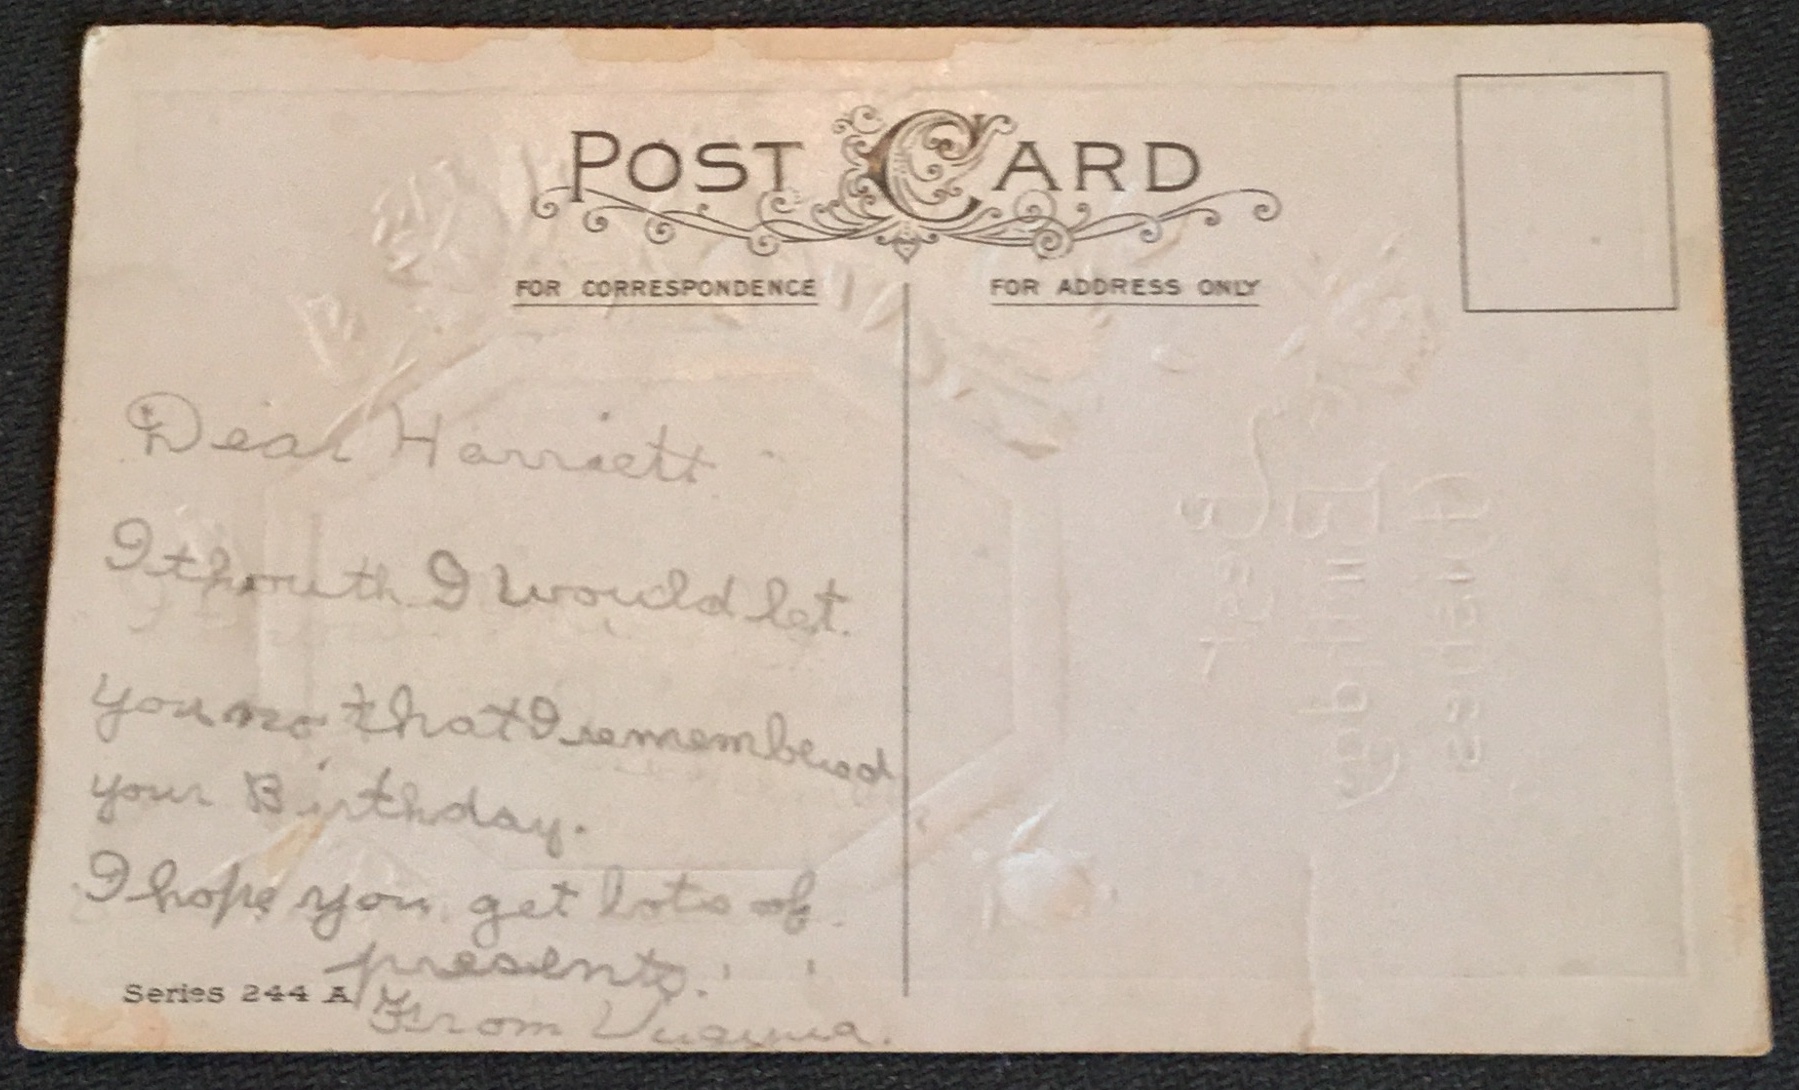 POST CARD
FOR CORRESPONDENCE
FOR ADDRESS ONLY
Dear Harriett
I thouth I would let
you no that I remembered
your Birthday.
I hope you get lots of
presents.
From Virginia.
Series 244 A
Best
Birthday
Wishes